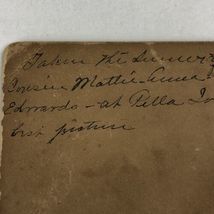 Taken the Summer
Cousin Mattie Anna
Edwards - at Pella Io
best picture